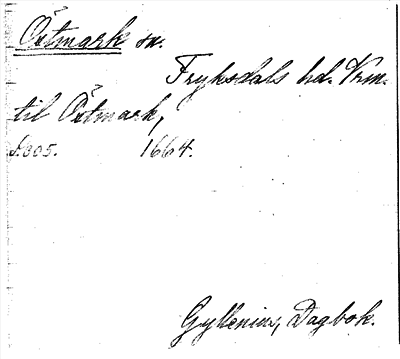 Östmark sn.
Fryksdals hd. Vrm.
til Östmark,
s. 305. 1664.
Gyllenius, Dagbok.